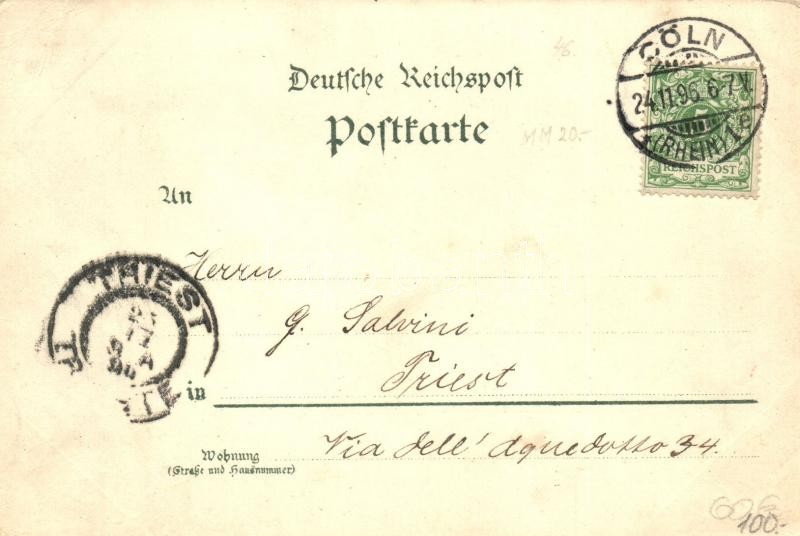 46.
Deutsche Reichspost
Postkarte
MM 20.-
CÖLN
24.11.96. 6-7V.
(RHEIN) 1.e
REICHSPOST
An
Herrn
TRIEST
G. Salvini
in Triest
Wohnung
(Straße und Hausnummer)
Via dell' Aquedotto 34.
100.-